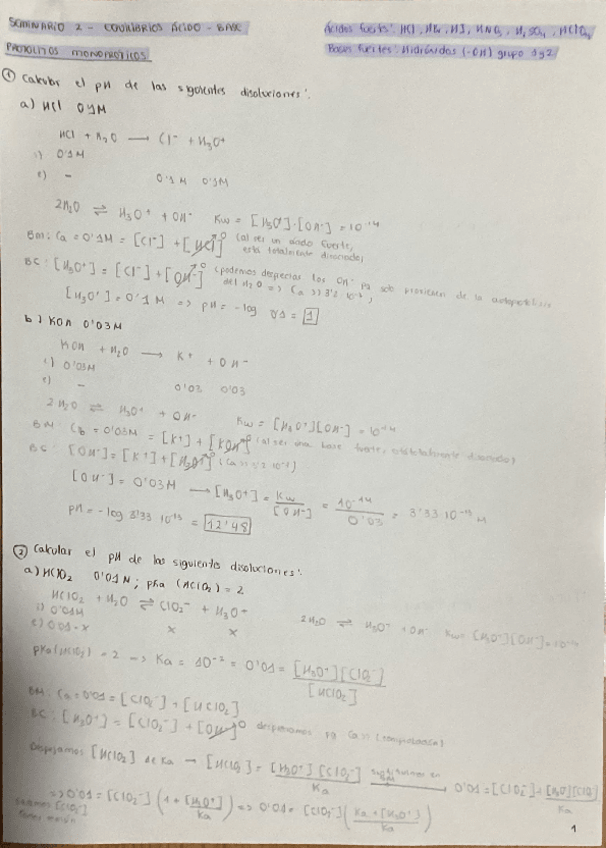 SEMINARIO 2 - EQUILIBRIOS ÁCIDO - BASE
Ácidos fuertes: HCl, HBr, HI, HNO3, H2SO4, HClO4
PROTOLITOS MONOPRÓTICOS
Bases fuertes: Hidróxidos (-OH) grupo 1 y 2
① Calcular el pH de las siguientes disoluciones:
a) HCl 0'1M
HCl + H2O → Cl- + H3O+
i) 0'1M
e) - 0'1M 0'1M
2H2O ⇌ H3O+ + OH- Kw = [H3O+]·[OH-] = 10^-14
BM: Ca = 0'1M = [Cl-] + [HCl]^0 (al ser un ácido fuerte,
está totalmente disociado)
BC: [H3O+] = [Cl-] + [OH-]^0 (podemos despreciar los OH- pq solo provienen de la autoprotólisis
del H2O => Ca >> 3'2·10^-7)
[H3O+] = 0'1M => pH = -log 0'1 = 1
b) KOH 0'03M
KOH + H2O → K+ + OH-
i) 0'03M
e) - 0'03 0'03
2H2O ⇌ H3O+ + OH- Kw = [H3O+][OH-] = 10^-14
BM Cb = 0'03M = [K+] + [KOH]^0 (al ser una base fuerte, está totalmente disociado)
BC: [OH-] = [K+] + [H3O+]^0 (Ca >> 3'2·10^-7)
[OH-] = 0'03M → [H3O+] = Kw / [OH-] = 10^-14 / 0'03 = 3'33·10^-13 M
pH = -log 3'33·10^-13 = 12'48
② Calcular el pH de las siguientes disoluciones:
a) HClO2 0'01M; pKa (HClO2) = 2
HClO2 + H2O ⇌ ClO2- + H3O+
i) 0'01M
2H2O ⇌ H3O+ + OH- Kw = [H3O+][OH-] = 10^-14
e) 0'01-x x x
pKa (HClO2) = 2 → Ka = 10^-2 = 0'01 = [H3O+][ClO2-] / [HClO2]
BM: Ca = 0'01 = [ClO2-] + [HClO2]
BC: [H3O+] = [ClO2-] + [OH-]^0 despreciamos pq Ca >>
Despejamos [HClO2] de Ka → [HClO2] = [H3O+][ClO2-] / Ka sustituimos en → 0'01 = [ClO2-] + [H3O+][ClO2-] / Ka
=> 0'01 = [ClO2-] (1 + [H3O+] / Ka) => 0'01 = [ClO2-] (Ka + [H3O+] / Ka)
Sacamos [ClO2-]
factor común
1